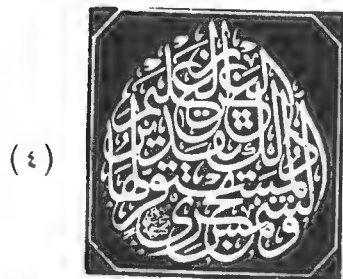 (٤)
والشمس تجري لمستقر لها ذلك تقدير العزيز العليم